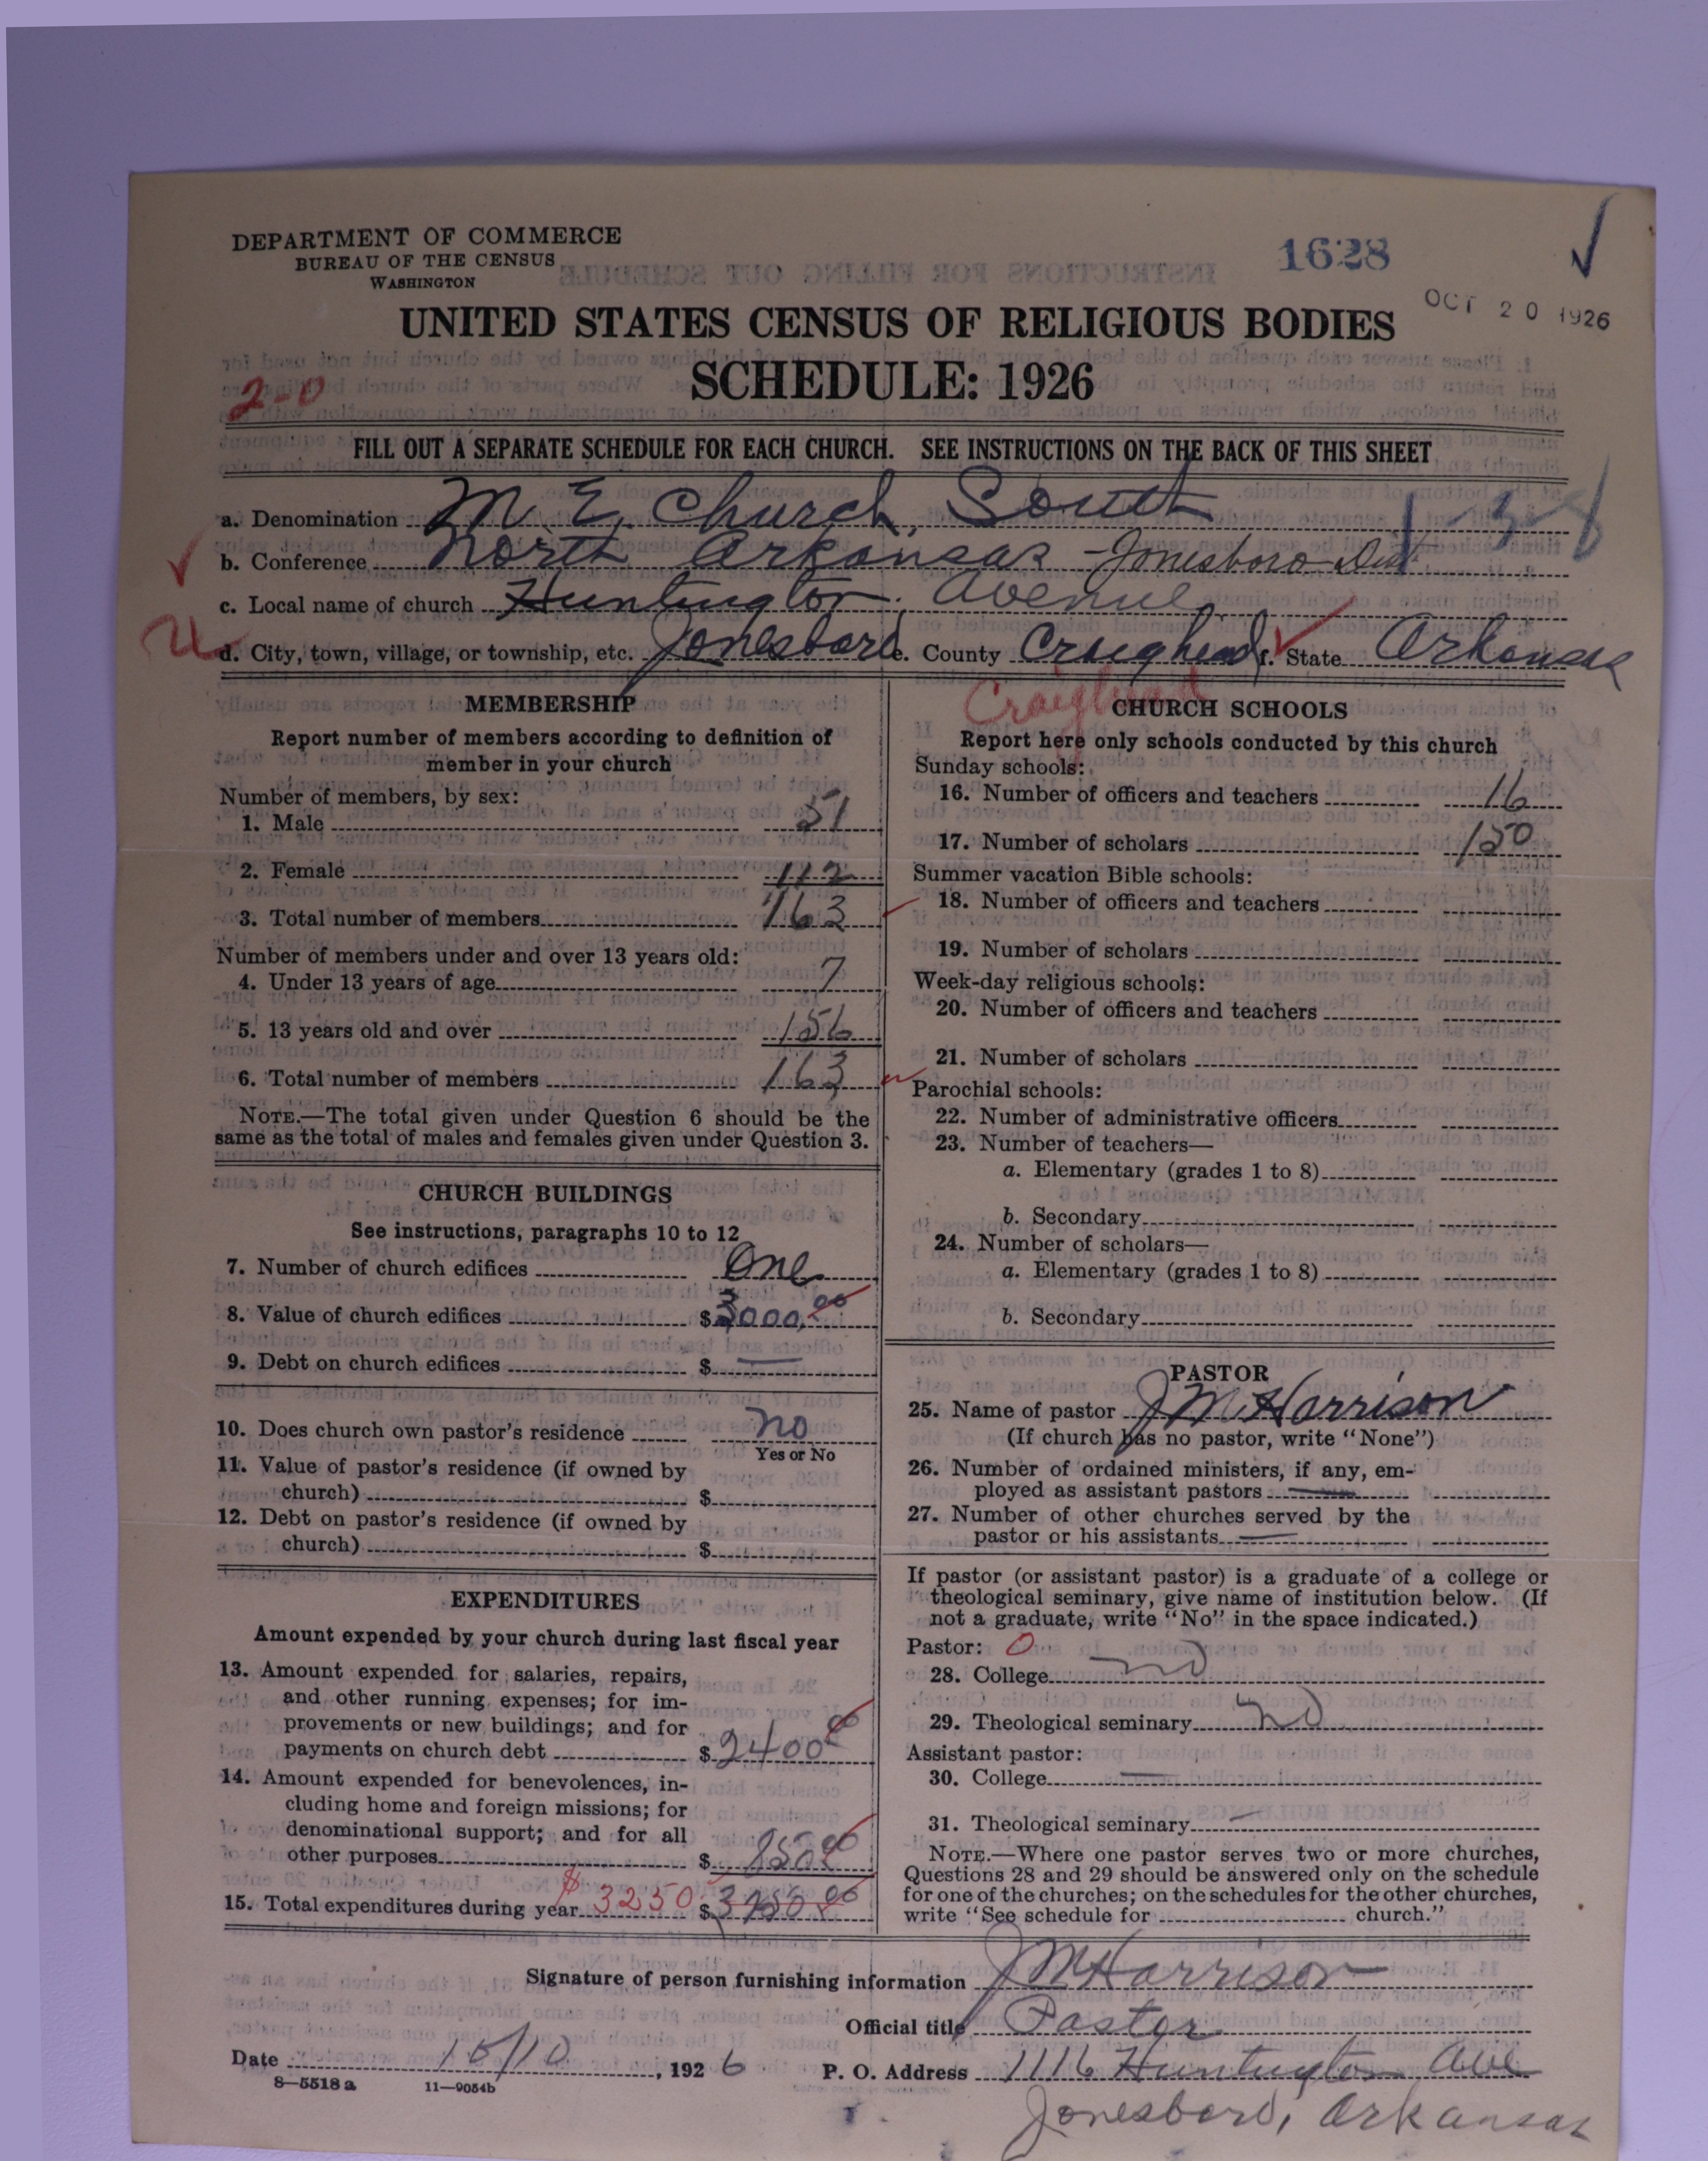 DEPARTMENT OF COMMERCE
BUREAU OF THE CENSUS
WASHINGTON
1628
OCT 20 1926
UNITED STATES CENSUS OF RELIGIOUS BODIES
SCHEDULE: 1926
2-0
FILL OUT A SEPARATE SCHEDULE FOR EACH CHURCH. SEE INSTRUCTIONS ON THE BACK OF THIS SHEET
a. Denomination M. E. Church, South
b. Conference North Arkansas - Jonesboro Dist
c. Local name of church Huntington Avenue
d. City, town, village, or township, etc. Jonesboro e. County Craighead f. State Arkansas
Craighead
MEMBERSHIP
Report number of members according to definition of
member in your church
Number of members, by sex:
1. Male 51
2. Female 112
3. Total number of members 163
Number of members under and over 13 years old:
4. Under 13 years of age 7
5. 13 years old and over 156
6. Total number of members 163
NOTE.—The total given under Question 6 should be the
same as the total of males and females given under Question 3.
CHURCH BUILDINGS
See instructions, paragraphs 10 to 12
7. Number of church edifices One
8. Value of church edifices $3000.00
9. Debt on church edifices $ —
10. Does church own pastor's residence no
Yes or No
11. Value of pastor's residence (if owned by
church) $
12. Debt on pastor's residence (if owned by
church) $
EXPENDITURES
Amount expended by your church during last fiscal year
13. Amount expended for salaries, repairs,
and other running expenses; for im-
provements or new buildings; and for
payments on church debt $2400 00
14. Amount expended for benevolences, in-
cluding home and foreign missions; for
denominational support; and for all
other purposes $ 850 00
15. Total expenditures during year $3250 $
CHURCH SCHOOLS
Report here only schools conducted by this church
Sunday schools:
16. Number of officers and teachers 16
17. Number of scholars 150
Summer vacation Bible schools:
18. Number of officers and teachers
19. Number of scholars
Week-day religious schools:
20. Number of officers and teachers
21. Number of scholars
Parochial schools:
22. Number of administrative officers
23. Number of teachers—
a. Elementary (grades 1 to 8)
b. Secondary
24. Number of scholars—
a. Elementary (grades 1 to 8)
b. Secondary
PASTOR
25. Name of pastor J M Harrison
(If church has no pastor, write "None")
26. Number of ordained ministers, if any, em-
ployed as assistant pastors —
27. Number of other churches served by the
pastor or his assistants —
If pastor (or assistant pastor) is a graduate of a college or
theological seminary, give name of institution below. (If
not a graduate, write "No" in the space indicated.)
Pastor: 0
28. College no
29. Theological seminary no
Assistant pastor:
30. College —
31. Theological seminary —
NOTE.—Where one pastor serves two or more churches,
Questions 28 and 29 should be answered only on the schedule
for one of the churches; on the schedules for the other churches,
write "See schedule for church."
Signature of person furnishing information J M Harrison
Official title Pastor
Date 15/10, 1926 P. O. Address 1116 Huntington Ave
Jonesboro, Arkansas
8—5518 a 11—9054b